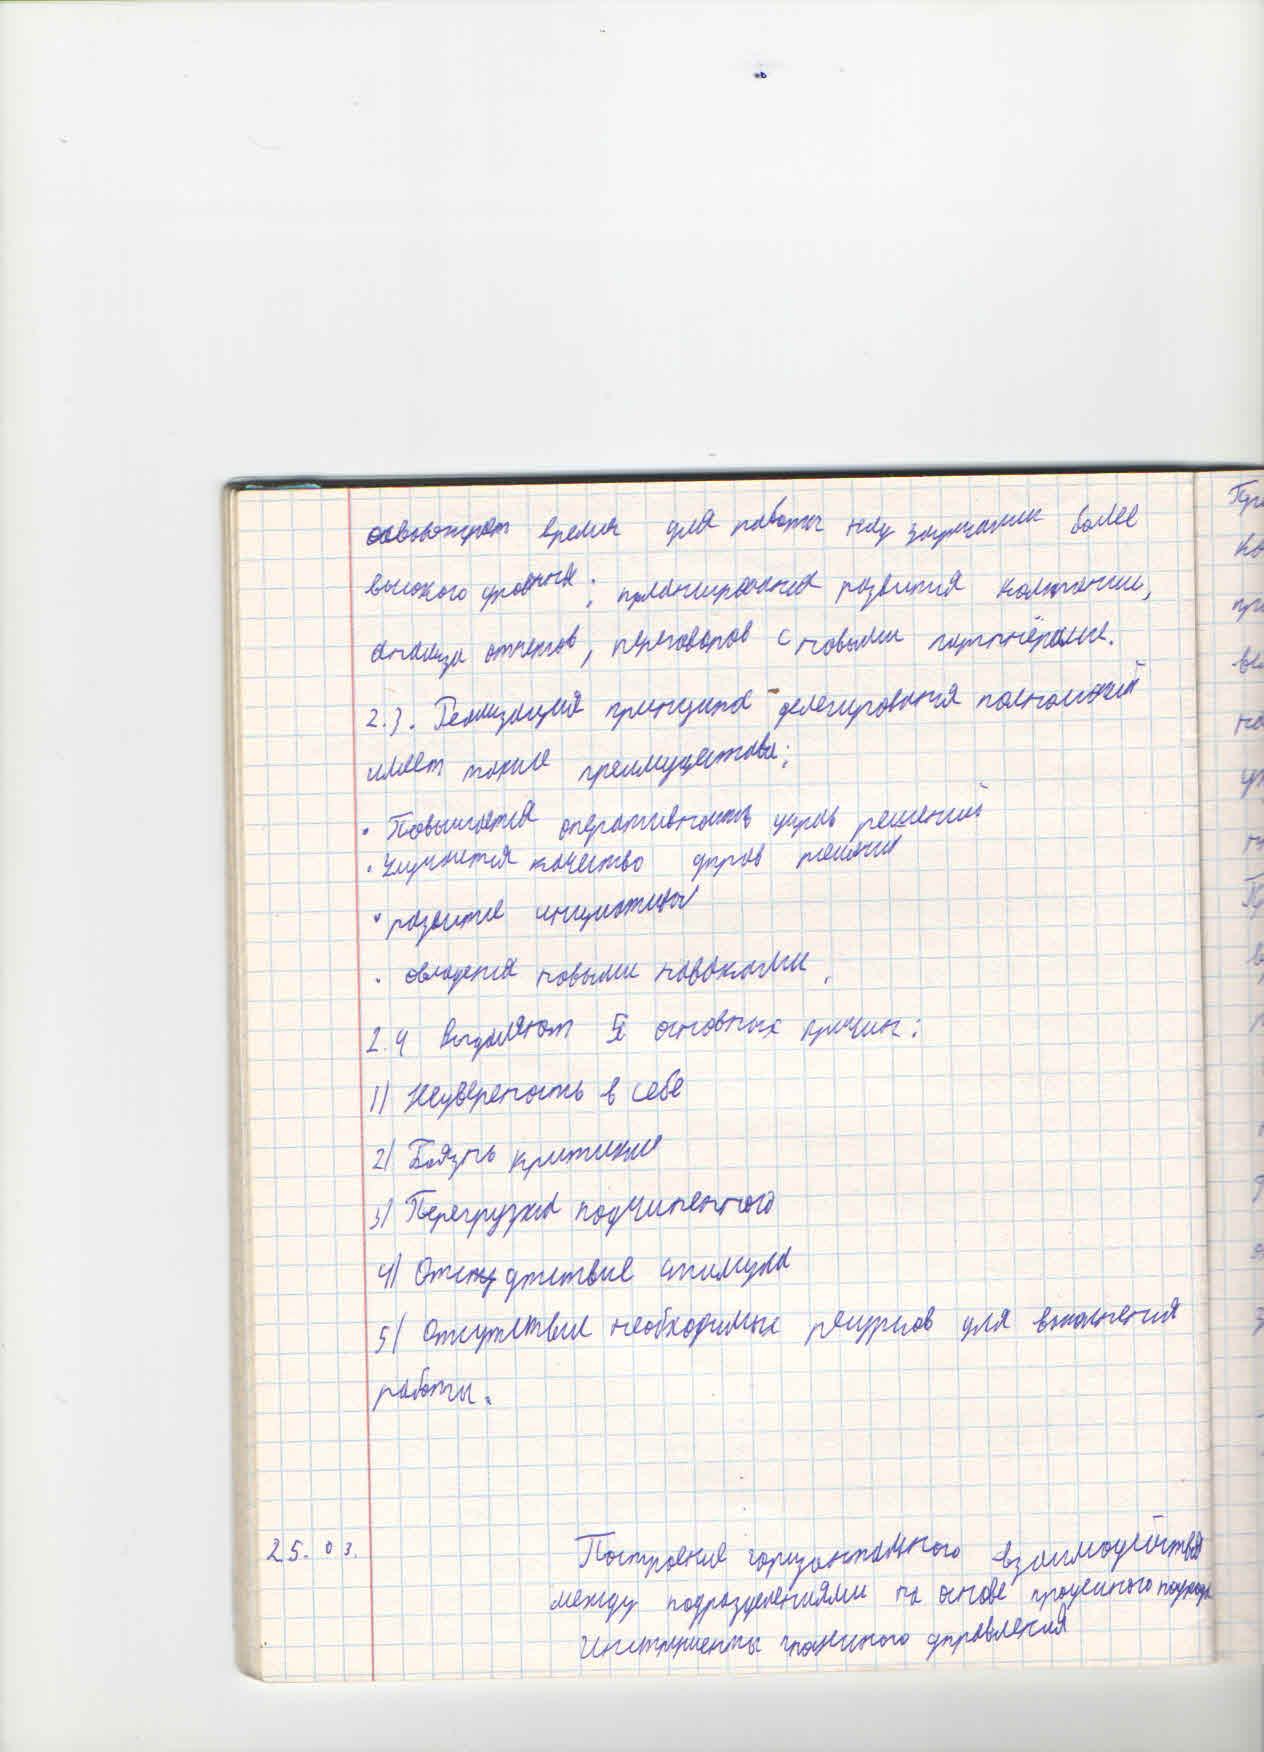 освобождает время для работы над задачами более
высокого уровня: планирования развития компании,
анализа отчетов, переговоров с новыми партнёрами.
2.3. Реализация принципа делегирования полномочий
имеет такие преимущества:
• Повышается оперативность управ решений
• Улучшется качество управ решения
• развитие инициативы
• овладения новыми навыками.
2.4 Выделяют 5 основных причин:
1) Неувереность в себе
2) Боязнь критики
3) Перегрузка подчиненного
4) Отсутствие стимула
5) Отсутствие необходимых ресурсов для выполнения
работы.
25.03. Построение горизонтального взаимодействия
между подразделениями на основе процесного подхода
Инструменты управления
Пр
ко
пр
на